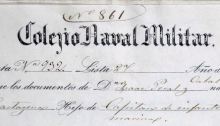 Nº 861
Colegio Naval Militar.
ta Nº 932 Lista 27 Año d
ne los documentos de Dn Isaac Peral y
artagena Hijo de Capitan de infante
marina